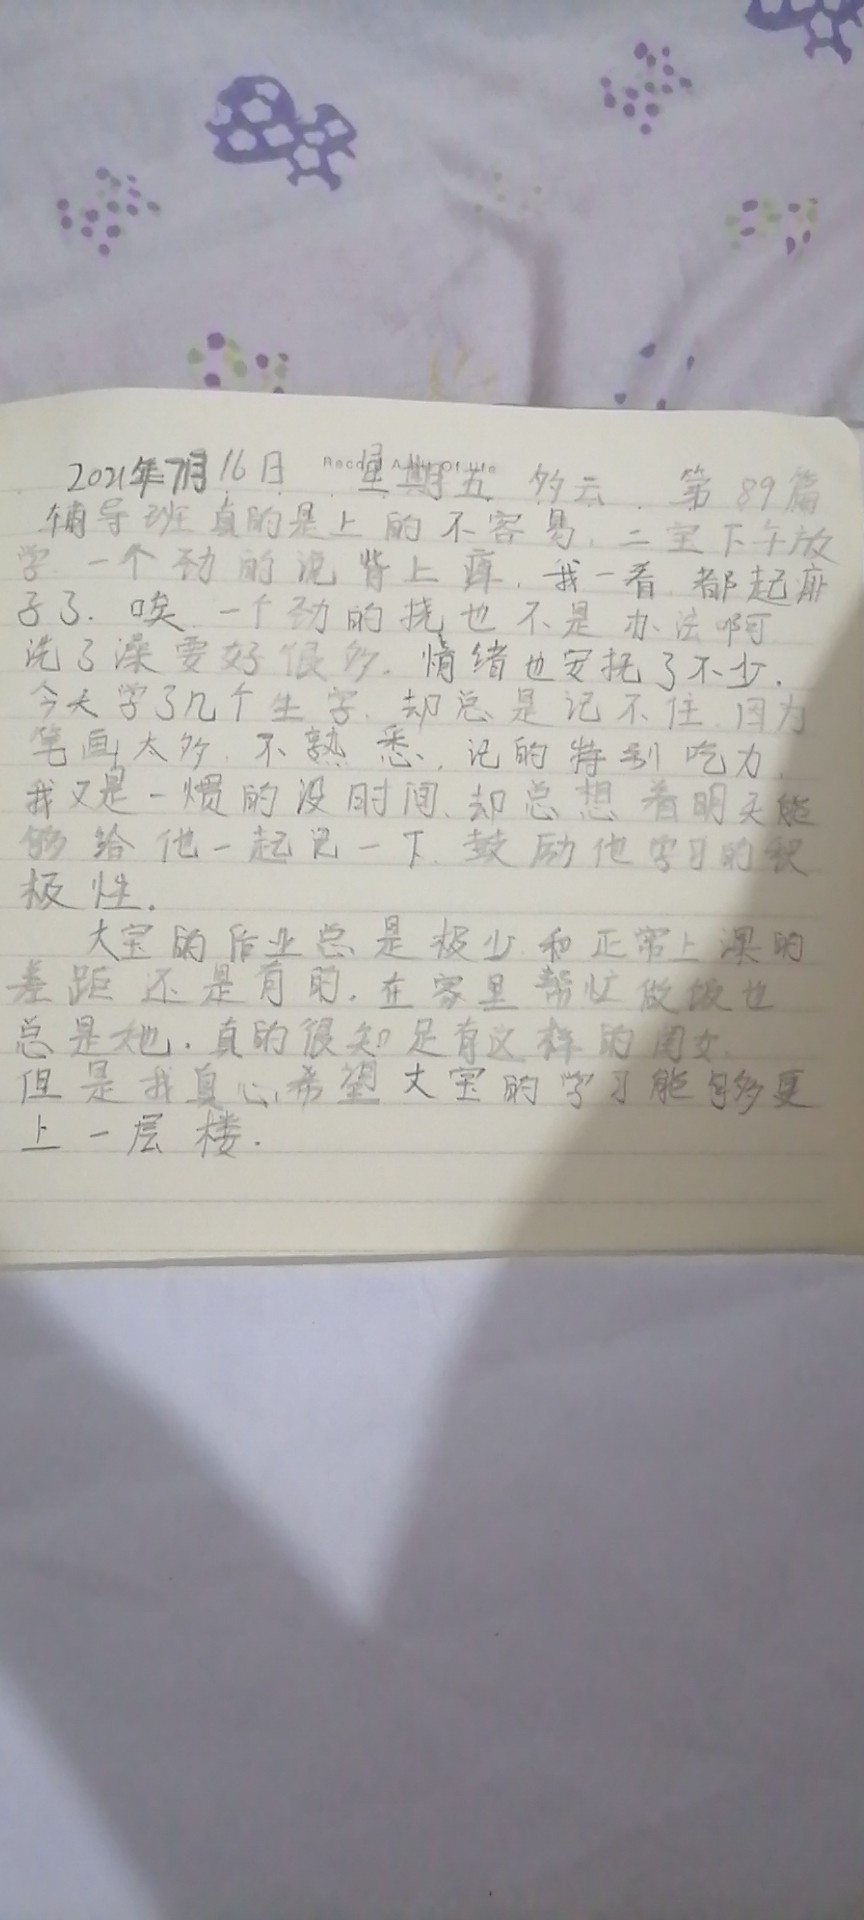 2021年7月16日 星期五 多云 第89篇
辅导班真的是上的不容易,二宝下午放
学,一个劲的说背上痒,我一看,都起痱
子了.唉,一个劲的挠也不是办法啊
洗了澡要好很多.情绪也安抚了不少.
今天学了几个生字,却总是记不住,因为
笔画太多,不熟悉,记的特别吃力,
我又是一惯的没时间,却总想着明天能
够给他一起说一下,鼓励他学习的积
极性.
大宝的作业总是极少,和正常上课的
差距还是有的,在家里帮忙做饭也
总是她.真的很知足有这样的闺女,
但是我真心希望大宝的学习能够更
上一层楼.